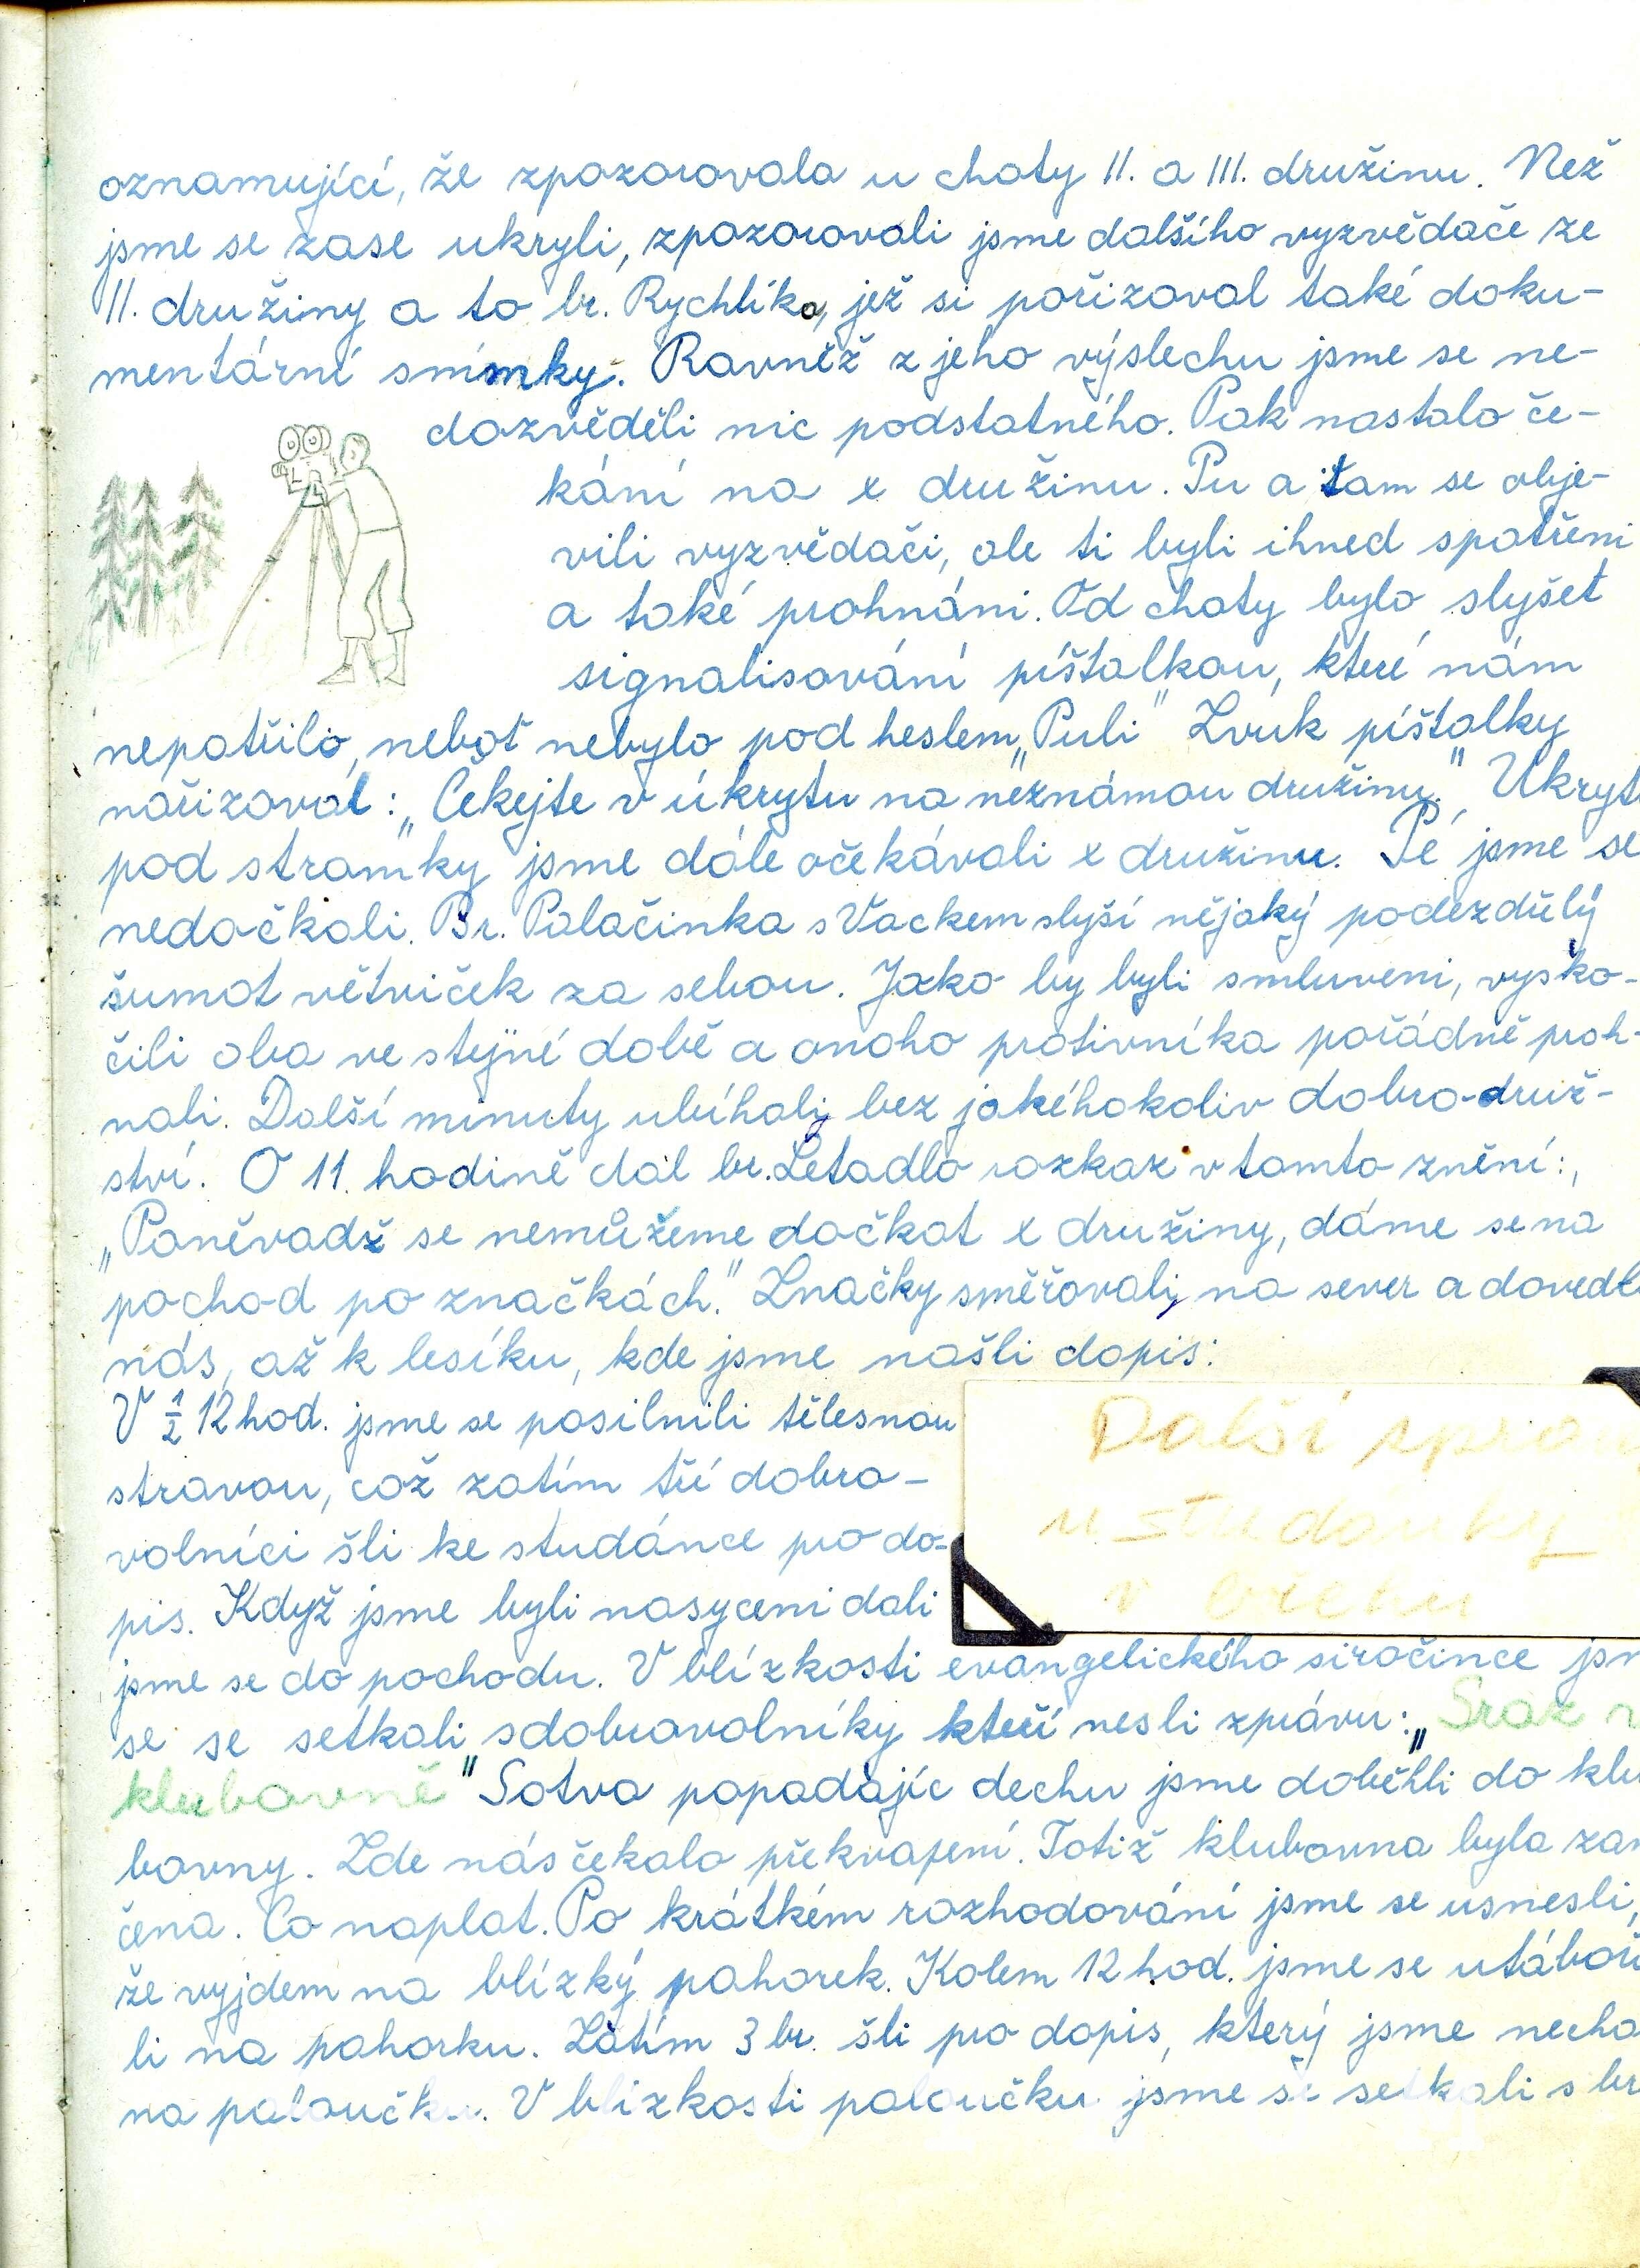 oznamující, že zpozorovala u chaty II. a III. družinu. Než
jsme se zase ukryli, zpozorovali jsme dalšího vyzvědače ze
II. družiny a to br. Rychlíka, jež si pořizoval také doku-
mentární snímky. Rovněž z jeho výslechu jsme se ne-
dozvěděli nic podstatného. Pak nastalo če-
kání na x družinu. Tu a tam se obje-
vili vyzvědači, ale ti byli ihned spatřeni
a také prohnáni. Od chaty bylo slyšet
signalisování píšťalkou, které nám
nepatřilo, neboť nebylo pod heslem „Puli" Zvuk píšťalky
nařizoval: „Čekejte v úkrytu na neznámou družinu." Ukryti
pod stromky jsme dále očekávali x družinu. Té jsme se
nedočkali. Br. Palačinka s Vackem slyší nějaký podezdřlý
šumot větviček za sebou. Jako by byli smluveni, vysko-
čili oba ve stejné době a onoho protivníka pořádně proh-
nali. Další minuty ubíhaly bez jakéhokoliv dobro-druž-
ství. O 11. hodině dal br. Letadlo rozkaz v tomto znění:
„Poněvadž se nemůžeme dočkat x družiny, dáme se na
pochod po značkách." Značky směřovaly na sever a dovedly
nás, až k lesíku, kde jsme našli dopis:
V ½ 12 hod. jsme se posilnili tělesnou
stravou, což zatím tři dobro-
volníci šli ke studánce pro do-
pis. Když jsme byli nasyceni dali
Další
u studánky
v
jsme se do pochodu. V blízkosti evangelického siročince jsm
se se setkali s dobrovolníky kteří nesli zprávu: „Sraz v
klubovně" Sotva popadajíc dechu jsme doběhli do klu
bovny. Zde nás čekalo překvapení. Totiž klubovna byla zam
čena. Co naplat. Po krátkém rozhodování jsme se usnesli,
že vyjdem na blízký pahorek. Kolem 12 hod. jsme se utáboři
li na pahorku. Zatím 3 br. šli pro dopis, který jsme necha
na paloučku. V blízkosti paloučku jsme se setkali s br